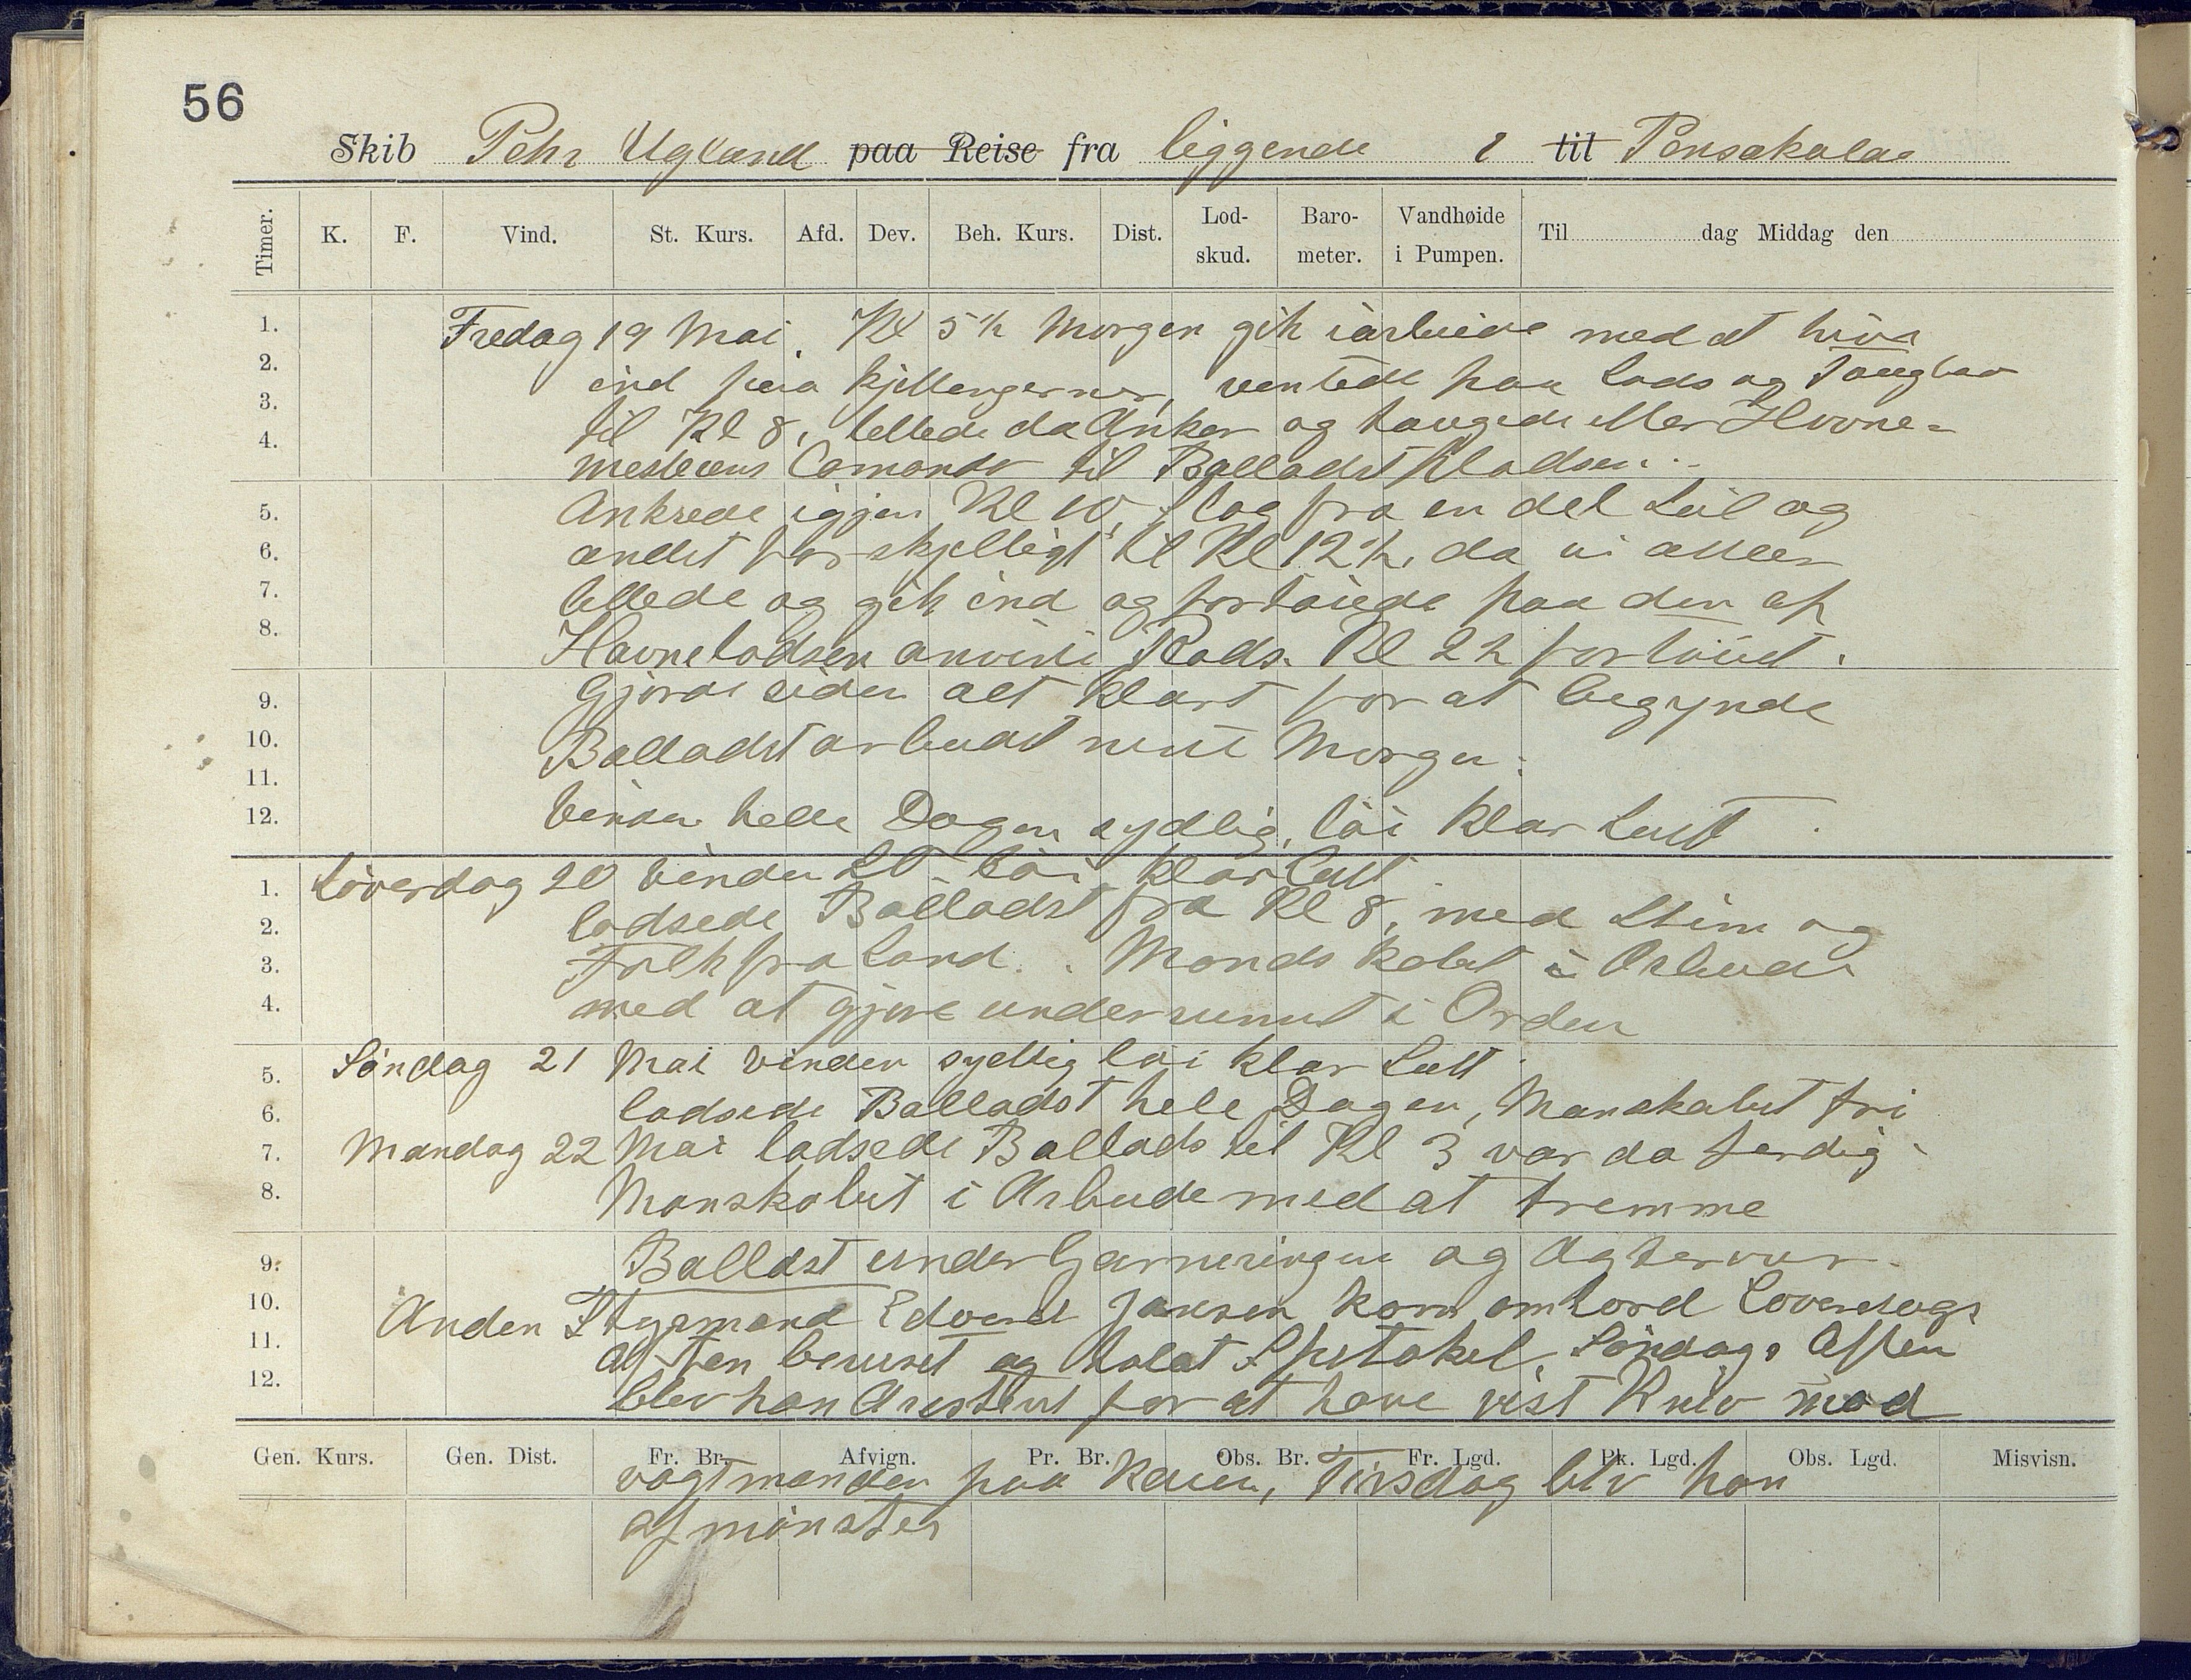 56
Skib Pehr Ugland paa Reise fra liggende i til Pensakola
Timer. K. F. Vind. St. Kurs. Afd. Dev. Beh. Kurs. Dist. Lod-skud. Baro-meter. Vandhøide i Pumpen. Til dag Middag den
1. Fredag 19 Mai. Kl 5½ Morgen gik i arbeide med at hive
2. ind paa kjettengerne, ventede paa Lods og Taugbaad
3. til Kl 8, lettede da Anker og taugede efter Havne-
4. mesterens Comando til Balladst Pladsen.
5. Ankrede igjen Kl 10, slog fra en del Seil og
6. andet forskjelligt til Kl 12½, da vi atter
7. lettede og gik ind og fortøiede paa den af
8. Havnelodsen anviste Plads. Kl 2½ fortøiet.
9. Gjorde siden alt klart for at begynde
10. Balladstarbeidet neste Morgen.
11.
12. Vinden hele Dagen sydlig, løi klar Luft
1. Løverdag 20 Vinden SO løi klar Luft
2. lodsede Balladst fra Kl 8, med Stim og
3. Folk fra Land. Mandskabet i Arbeide
4. med at gjøre underrummet i Orden
5. Søndag 21 Mai Vinden sydlig løi klar Luft
6. lodsede Balladst hele Dagen, Manskabet fri
7. Mandag 22 Mai lodsede Ballads til Kl 3 var da ferdig
8. Manskabet i Arbeide med at fremme
9. Ballast under Garneringen og Agterover
10. Anden Styrmand Edvard Jansen kom ombord Løverdags
11. Aften beruset og holdt Spetakel, Søndags Aften
12. blev han Arestert for at have vist Kniv mod
Gen. Kurs. Gen. Dist. Fr. Br. Afvign. Pr. Br. Obs. Br. Fr. Lgd. Pk. Lgd. Obs. Lgd. Misvisn.
vagtmanden paa Kaien, Tirsdag blv han
afmønster